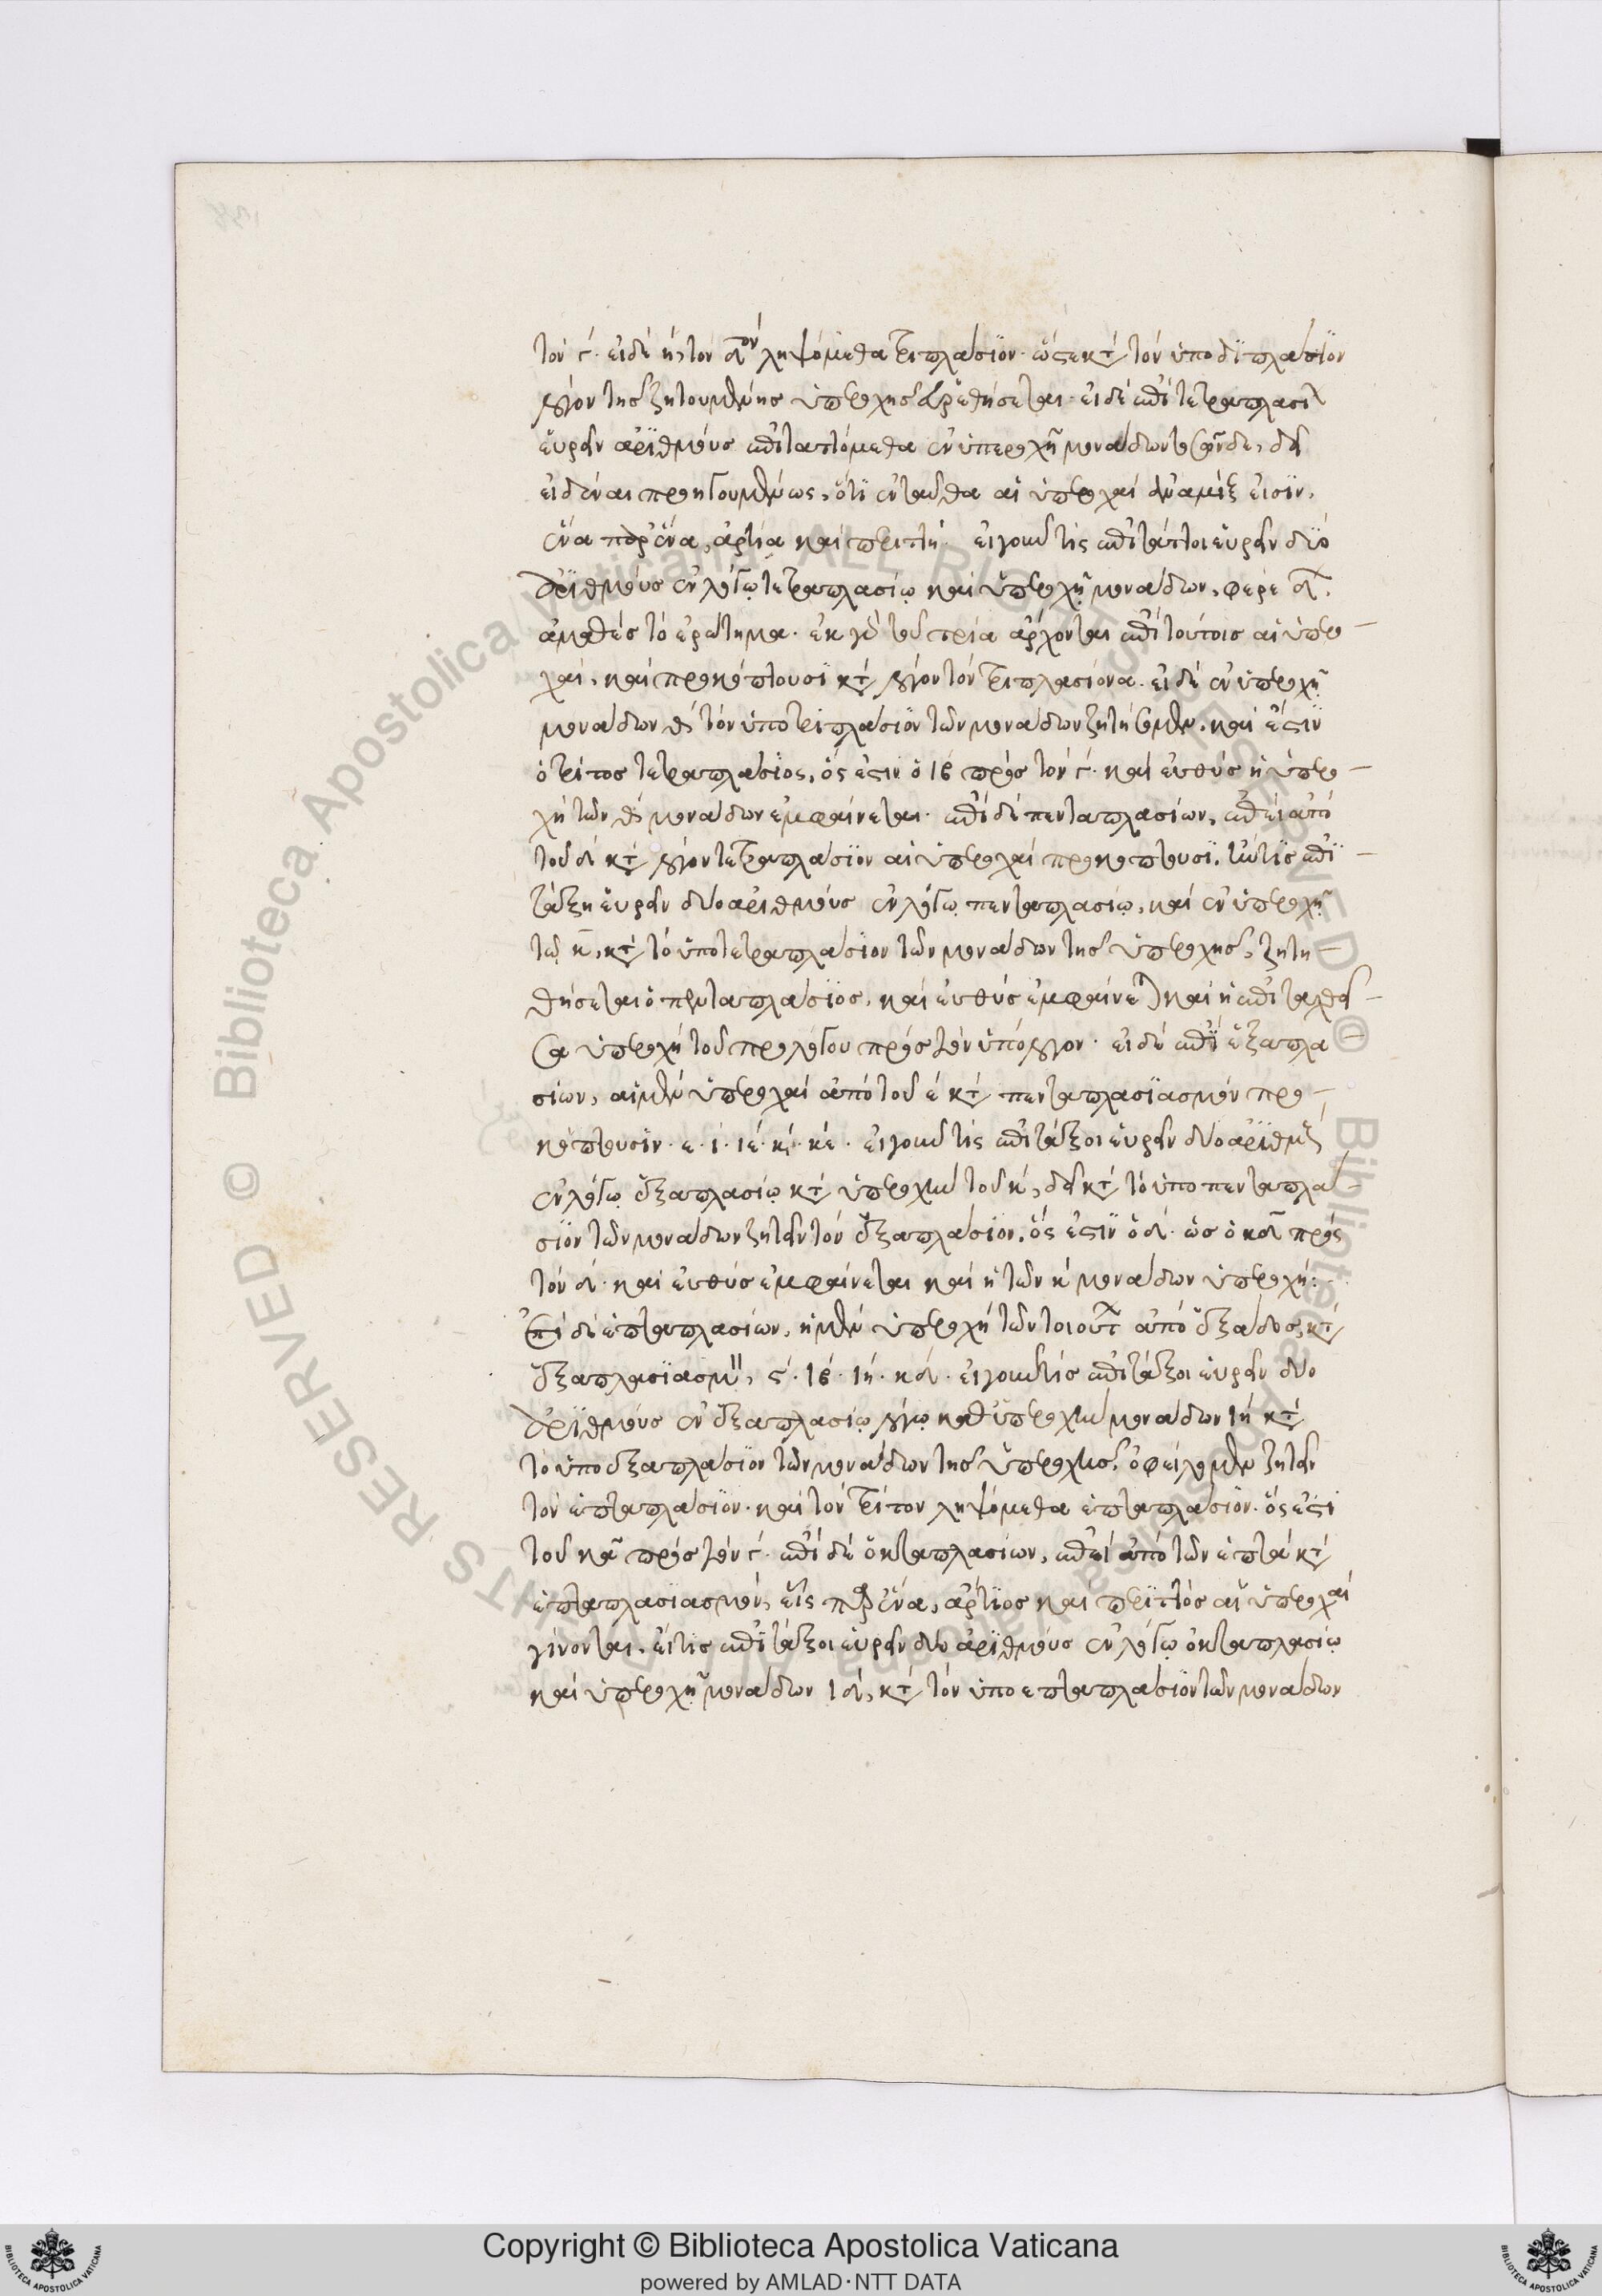 τὸν γ. εἰ δὲ η, τὸν δον ληψόμεθα τριπλάσιον. ὥστε κατὰ τὸν ὑποδιπλάσιον
λόγον τῆς ζητουμένης ὑπεροχῆς εὑρεθήσεται. εἰ δὲ ἐπὶ τετραπλασι
εὑρεῖν ἀριθμοὺς ἐπιταττόμεθα ἐν ὑπεροχῇ μονάδων τοσῶνδε, δεῖ
εἰδέναι προηγουμένως, ὅτι ἐνταῦθα αἱ ὑπεροχαὶ ἀναμίξ εἰσιν,
ἕνα παρ' ἕνα, ἀρτία καὶ περιττή. εἰ γοῦν τίς ἐπιτάττοι εὑρεῖν δύο
ἀριθμοὺς ἐν λόγῳ τετραπλασίῳ καὶ ὑπεροχῇ μονάδων, φέρε δ,
ἀμαθὲς τὸ ἐρώτημα. ἐκ γὰρ τοῦ τρία ἄρχονται ἐπὶ τούτοις αἱ ὑπερο-
χαί, καὶ προκόπτουσι κατὰ λόγον τὸν τριπλασίονα. εἰ δὲ ἐν ὑπεροχῇ
μονάδων θ, τὸν ὑποτριπλάσιον τῶν μονάδων ζητήσομεν. καὶ ἔστιν
ὁ τρίτος τετραπλάσιος, ὅς ἐστιν ὁ ιβ πρὸς τὸν γ. καὶ εὐθὺς ἡ ὑπερο-
χὴ τῶν θ μονάδων ἐμφαίνεται. ἐπὶ δὲ πενταπλασίων, ἐπεὶ ἀπὸ
τοῦ δ κατὰ λόγον τετραπλάσιον αἱ ὑπεροχαὶ προκόπτουσι, ἐάν τις ἐπι-
τάξῃ εὑρεῖν δύο ἀριθμοὺς ἐν λόγῳ πενταπλασίῳ, καὶ ἐν ὑπεροχῇ
τῷ κ, κατὰ τὸ ὑποτετραπλάσιον τῶν μονάδων τῆς ὑπεροχῆς, ζητη-
θήσεται ὁ πενταπλάσιος, καὶ εὐθὺς ἐμφαίνεται καὶ ἡ ἐπιταχθεῖ-
σα ὑπεροχὴ τοῦ προλόγου πρὸς τὸν ὑπόλογον. εἰ δὲ ἐπὶ ἑξαπλα-
σίων, αἱ μὲν ὑπεροχαὶ ἀπὸ τοῦ ε κατὰ πενταπλασιασμὸν προ-
κόπτουσιν. ε. ι. ιε. κ. κε. εἰ γοῦν τίς ἐπιτάξοι εὑρεῖν δύο ἀριθμοὺς
ἐν λόγῳ ἑξαπλασίῳ κατὰ ὑπεροχὴν τοῦ κ, δεῖ κατὰ τὸ ὑποπενταπλά-
σιον τῶν μονάδων ζητεῖν τὸν ἑξαπλάσιον, ὅς ἐστιν ὁ δ. ὡς ὁ κδ πρὸς
τὸν δ. καὶ εὐθὺς ἐμφαίνεται καὶ ἡ τῶν κ μονάδων ὑπεροχή:
Ἐπὶ δὲ ἑπταπλασίων, ἡ μὲν ὑπεροχὴ τῶν τοιούτ ἀπὸ ἑξάδος, κατὰ
ἑξαπλασιασμ, ς. ιβ. ιη. κδ. εἰ γοῦν τίς ἐπιτάξοι εὑρεῖν δύο
ἀριθμοὺς ἐν ἑξαπλασίῳ λόγῳ καθ' ὑπεροχὴν μονάδων ιη κατὰ
τὸ ὑποεξαπλάσιον τῶν μονάδων τῆς ὑπεροχῆς, ὀφείλομεν ζητεῖν
τὸν ἑπταπλάσιον. καὶ τὸν τρίτον ληψόμεθα ἑπταπλάσιον. ὅς ἐστι
τοῦ κα πρὸς τὸν γ. ἐπὶ δὲ ὀκταπλασίων, ἐπεὶ ἀπὸ τῶν ἑπτὰ κατὰ
ἑπταπλασιασμόν, εἷς παρ' ἕνα, ἄρτιος καὶ περιττὸς αἱ ὑπεροχαὶ
γίνονται. εἴ τις ἐπιτάξοι εὑρεῖν δύο ἀριθμοὺς ἐν λόγῳ ὀκταπλασίῳ
καὶ ὑπεροχῇ μονάδων ιδ, κατὰ τὸν ὑποεπταπλάσιον τῶν μονάδων
Copyright © Biblioteca Apostolica Vaticana
powered by AMLAD·NTT DATA